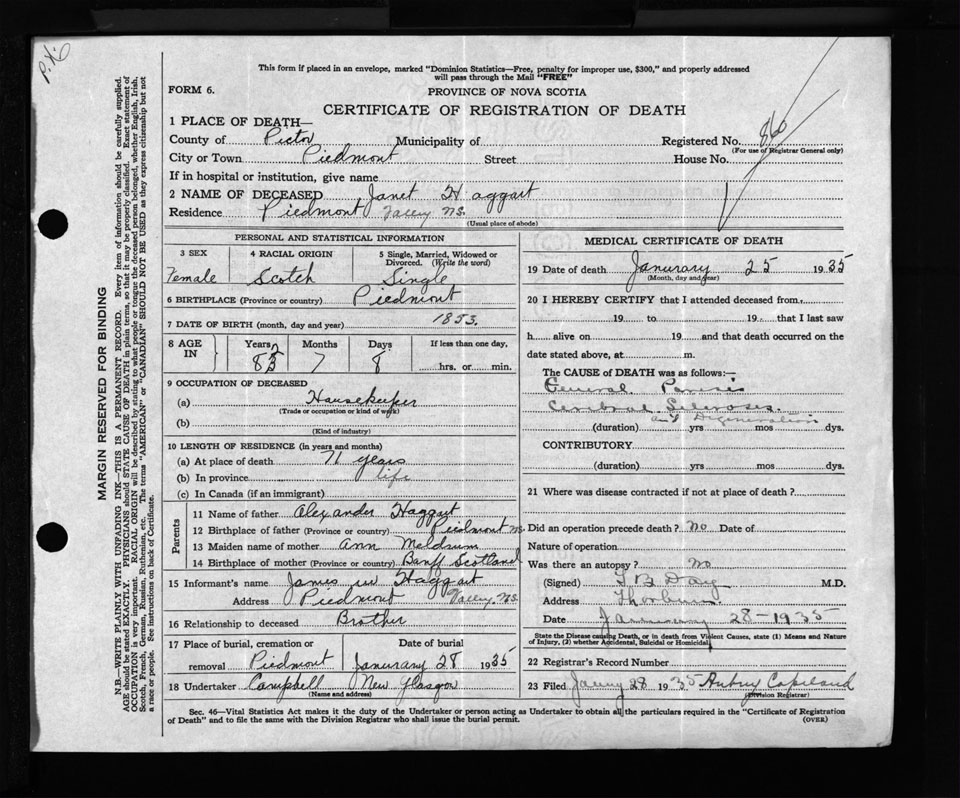 P.X.
This form if placed in an envelope, marked "Dominion Statistics—Free, penalty for improper use, $300," and properly addressed
will pass through the Mail "FREE"
FORM 6. PROVINCE OF NOVA SCOTIA
CERTIFICATE OF REGISTRATION OF DEATH
1 PLACE OF DEATH—
County of Pictou Municipality of Registered No. 860
(For use of Registrar General only)
City or Town Piedmont Street House No.
If in hospital or institution, give name
2 NAME OF DECEASED Janet Haggart
Residence Piedmont Valley NS.
(Usual place of abode)
PERSONAL AND STATISTICAL INFORMATION
3 SEX 4 RACIAL ORIGIN 5 Single, Married, Widowed or
Divorced. (Write the word)
Female Scotch Single
6 BIRTHPLACE (Province or country) Piedmont
7 DATE OF BIRTH (month, day and year) 1853.
8 AGE IN Years Months Days If less than one day,
7 8 hrs. or min.
9 OCCUPATION OF DECEASED
(a) Housekeeper
(Trade or occupation or kind of work)
(b)
(Kind of industry)
10 LENGTH OF RESIDENCE (in years and months)
(a) At place of death 71 years
(b) In province life
(c) In Canada (if an immigrant)
Parents
11 Name of father Alexander Haggart
12 Birthplace of father (Province or country) Piedmont NS.
13 Maiden name of mother Ann Meldrum
14 Birthplace of mother (Province or country) Banff Scotland
15 Informant's name James W Haggart
Address Piedmont Valley. NS.
16 Relationship to deceased Brother
17 Place of burial, cremation or Date of burial
removal Piedmont Janurary 28 1935
18 Undertaker Campbell New Glasgow
(Name and address)
MEDICAL CERTIFICATE OF DEATH
19 Date of death Janurary 25 1935
(Month, day and year)
20 I HEREBY CERTIFY that I attended deceased from
19 to 19 that I last saw
h alive on 19 and that death occurred on the
date stated above, at m.
The CAUSE of DEATH was as follows:—
General Paresis
Cerebral Sclerosis
and Degeneration
(duration) yrs mos dys.
CONTRIBUTORY
(duration) yrs mos dys.
21 Where was disease contracted if not at place of death?
Did an operation precede death? no Date of
Nature of operation
Was there an autopsy? no
(Signed) Day M.D.
Address Thorburn.
Date January 28-1935
State the Disease causing Death, or in death from Violent Causes, state (1) Means and Nature
of Injury, (2) whether Accidental, Suicidal or Homicidal
22 Registrar's Record Number
23 Filed Jany 28 1935 Aubrey Copeland
(Division Registrar)
Sec. 46—Vital Statistics Act makes it the duty of the Undertaker or person acting as Undertaker to obtain all the particulars required in the "Certificate of Registration
of Death" and to file the same with the Division Registrar who shall issue the burial permit. (OVER)
MARGIN RESERVED FOR BINDING
N.B.—WRITE PLAINLY WITH UNFADING INK—THIS IS A PERMANENT RECORD. Every item of information should be carefully supplied.
AGE should be stated EXACTLY. PHYSICIANS should STATE CAUSE OF DEATH in plain terms, so that it may be properly classified. Exact statement of
OCCUPATION is very important. RACIAL ORIGIN will be described by stating to what people or tongue the deceased person belonged, whether English, Irish,
Scotch, French, German, Russian, Ruthenian, etc. The terms "AMERICAN" or "CANADIAN" SHOULD NOT BE USED as they express citizenship but not
a race or people. See instructions on back of Certificate.